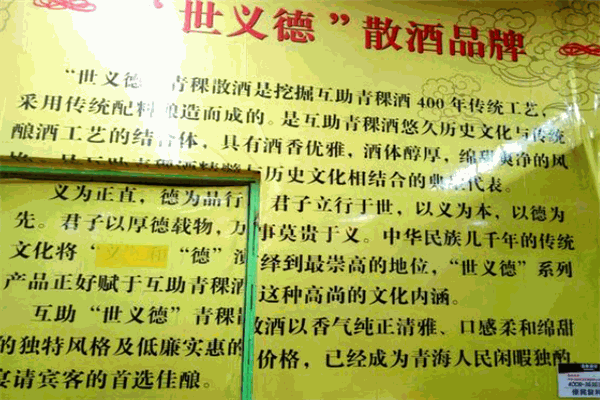 “世义德”散酒品牌
“世义德 青稞散酒是挖掘互助青稞酒400年传统工艺，
采用传统配料酿造而成的。是互助青稞酒悠久历史文化与传统
酿酒工艺的结合体，具有酒香优雅，酒体醇厚，绵甜爽净的风
历史文化相结合的典 代表。
义为正直，德为品行 君子立行于世，以义为本，以德为
先。君子以厚德载物，万事莫贵于义。中华民族几千年的传统
文化将“义”和“德”演绎到最崇高的地位，“世义德”系列
产品正好赋于互助青稞酒这种高尚的文化内涵。
互助“世义德”青稞散酒以香气纯正清雅、口感柔和绵甜
的独特风格及低廉实惠的价格，已经成为青海人民闲暇独酌
宴请宾客的首选佳酿。